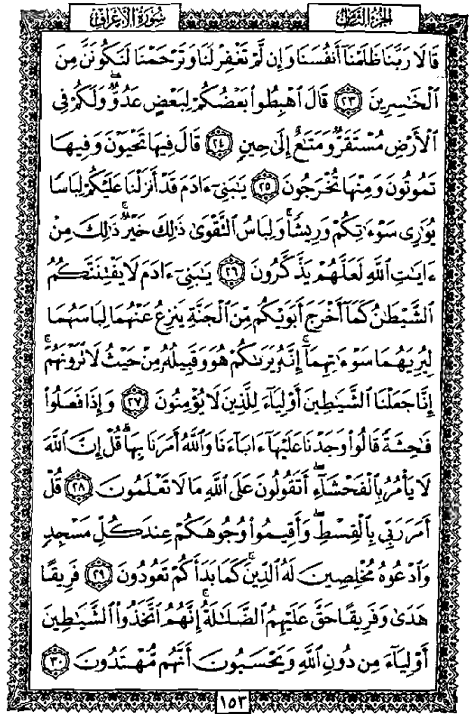 الجزء الثامن
سورة الأعراف
قَالَا رَبَّنَا ظَلَمْنَا أَنفُسَنَا وَإِن لَّمْ تَغْفِرْ لَنَا وَتَرْحَمْنَا لَنَكُونَنَّ مِنَ
الْخَاسِرِينَ ٢٣ قَالَ اهْبِطُوا بَعْضُكُمْ لِبَعْضٍ عَدُوٌّ وَلَكُمْ فِي
الْأَرْضِ مُسْتَقَرٌّ وَمَتَاعٌ إِلَىٰ حِينٍ ٢٤ قَالَ فِيهَا تَحْيَوْنَ وَفِيهَا
تَمُوتُونَ وَمِنْهَا تُخْرَجُونَ ٢٥ يَٰبَنِي ءَادَمَ قَدْ أَنزَلْنَا عَلَيْكُمْ لِبَاسًا
يُوَٰرِي سَوْءَٰتِكُمْ وَرِيشًا ۖ وَلِبَاسُ التَّقْوَىٰ ذَٰلِكَ خَيْرٌ ۚ ذَٰلِكَ مِنْ
ءَايَٰتِ اللَّهِ لَعَلَّهُمْ يَذَّكَّرُونَ ٢٦ يَٰبَنِي ءَادَمَ لَا يَفْتِنَنَّكُمُ
الشَّيْطَٰنُ كَمَا أَخْرَجَ أَبَوَيْكُم مِّنَ الْجَنَّةِ يَنزِعُ عَنْهُمَا لِبَاسَهُمَا
لِيُرِيَهُمَا سَوْءَٰتِهِمَا ۗ إِنَّهُ يَرَىٰكُمْ هُوَ وَقَبِيلُهُ مِنْ حَيْثُ لَا تَرَوْنَهُمْ ۗ
إِنَّا جَعَلْنَا الشَّيَٰطِينَ أَوْلِيَاءَ لِلَّذِينَ لَا يُؤْمِنُونَ ٢٧ وَإِذَا فَعَلُوا
فَٰحِشَةً قَالُوا وَجَدْنَا عَلَيْهَا ءَابَاءَنَا وَاللَّهُ أَمَرَنَا بِهَا ۗ قُلْ إِنَّ اللَّهَ
لَا يَأْمُرُ بِالْفَحْشَاءِ ۖ أَتَقُولُونَ عَلَى اللَّهِ مَا لَا تَعْلَمُونَ ٢٨ قُلْ
أَمَرَ رَبِّي بِالْقِسْطِ ۖ وَأَقِيمُوا وُجُوهَكُمْ عِندَ كُلِّ مَسْجِدٍ
وَادْعُوهُ مُخْلِصِينَ لَهُ الدِّينَ ۚ كَمَا بَدَأَكُمْ تَعُودُونَ ٢٩ فَرِيقًا
هَدَىٰ وَفَرِيقًا حَقَّ عَلَيْهِمُ الضَّلَٰلَةُ ۗ إِنَّهُمُ اتَّخَذُوا الشَّيَٰطِينَ
أَوْلِيَاءَ مِن دُونِ اللَّهِ وَيَحْسَبُونَ أَنَّهُم مُّهْتَدُونَ ٣٠
١٥٣